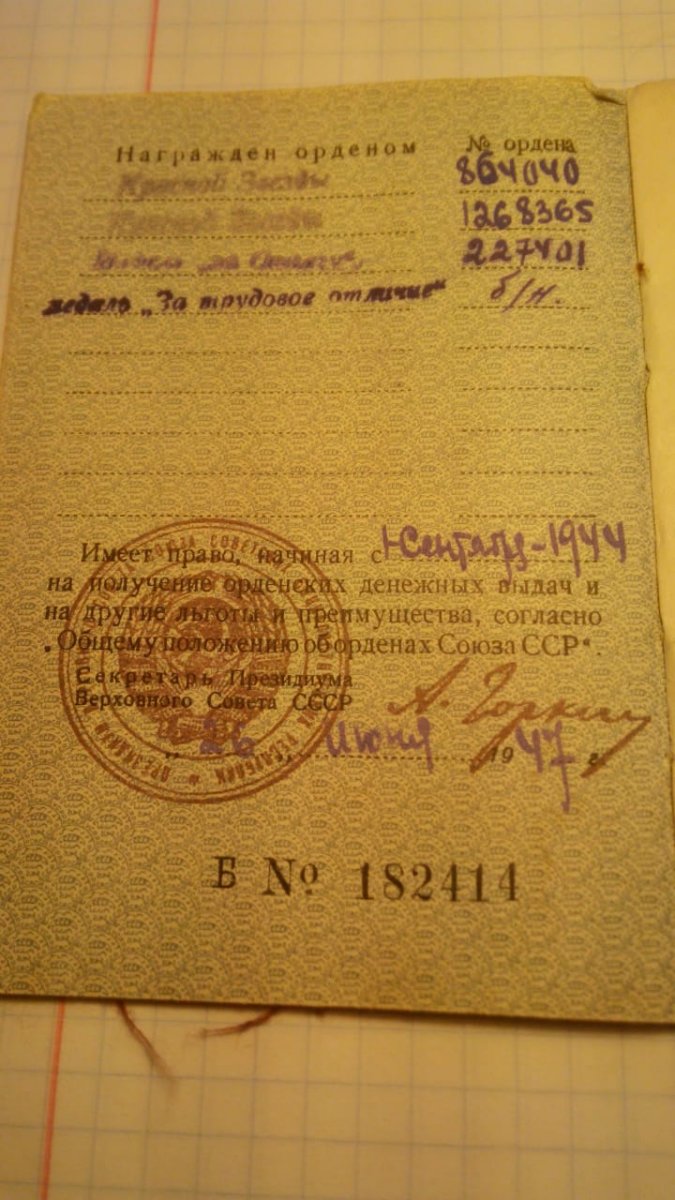 Награжден орденом № ордена
Красной Звезды 864040
Красной Звезды 1268365
Медаль „за Отвагу“ 227401
медаль „За трудовое отличие“ б/н.
Имеет право, начиная с 1 Сентября-1944
на получение орденских денежных выдач и
на другие льготы и преимущества, согласно
„Общему положению об орденах Союза ССР“.
Секретарь Президиума
Верховного Совета СССР А. Горкин
„26 Июня 1947 г.
Б № 182414